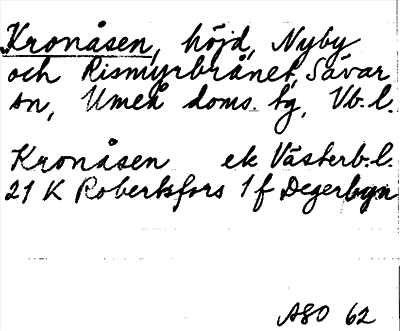 Kronåsen, höjd, Nyby
och Rismyrbrånet, Sävar
sn, Umeå doms. tg, Vb. l.
Kronåsen ek Västerb. l.
21 K Robertsfors 1 f Degerbyn
ASO 62